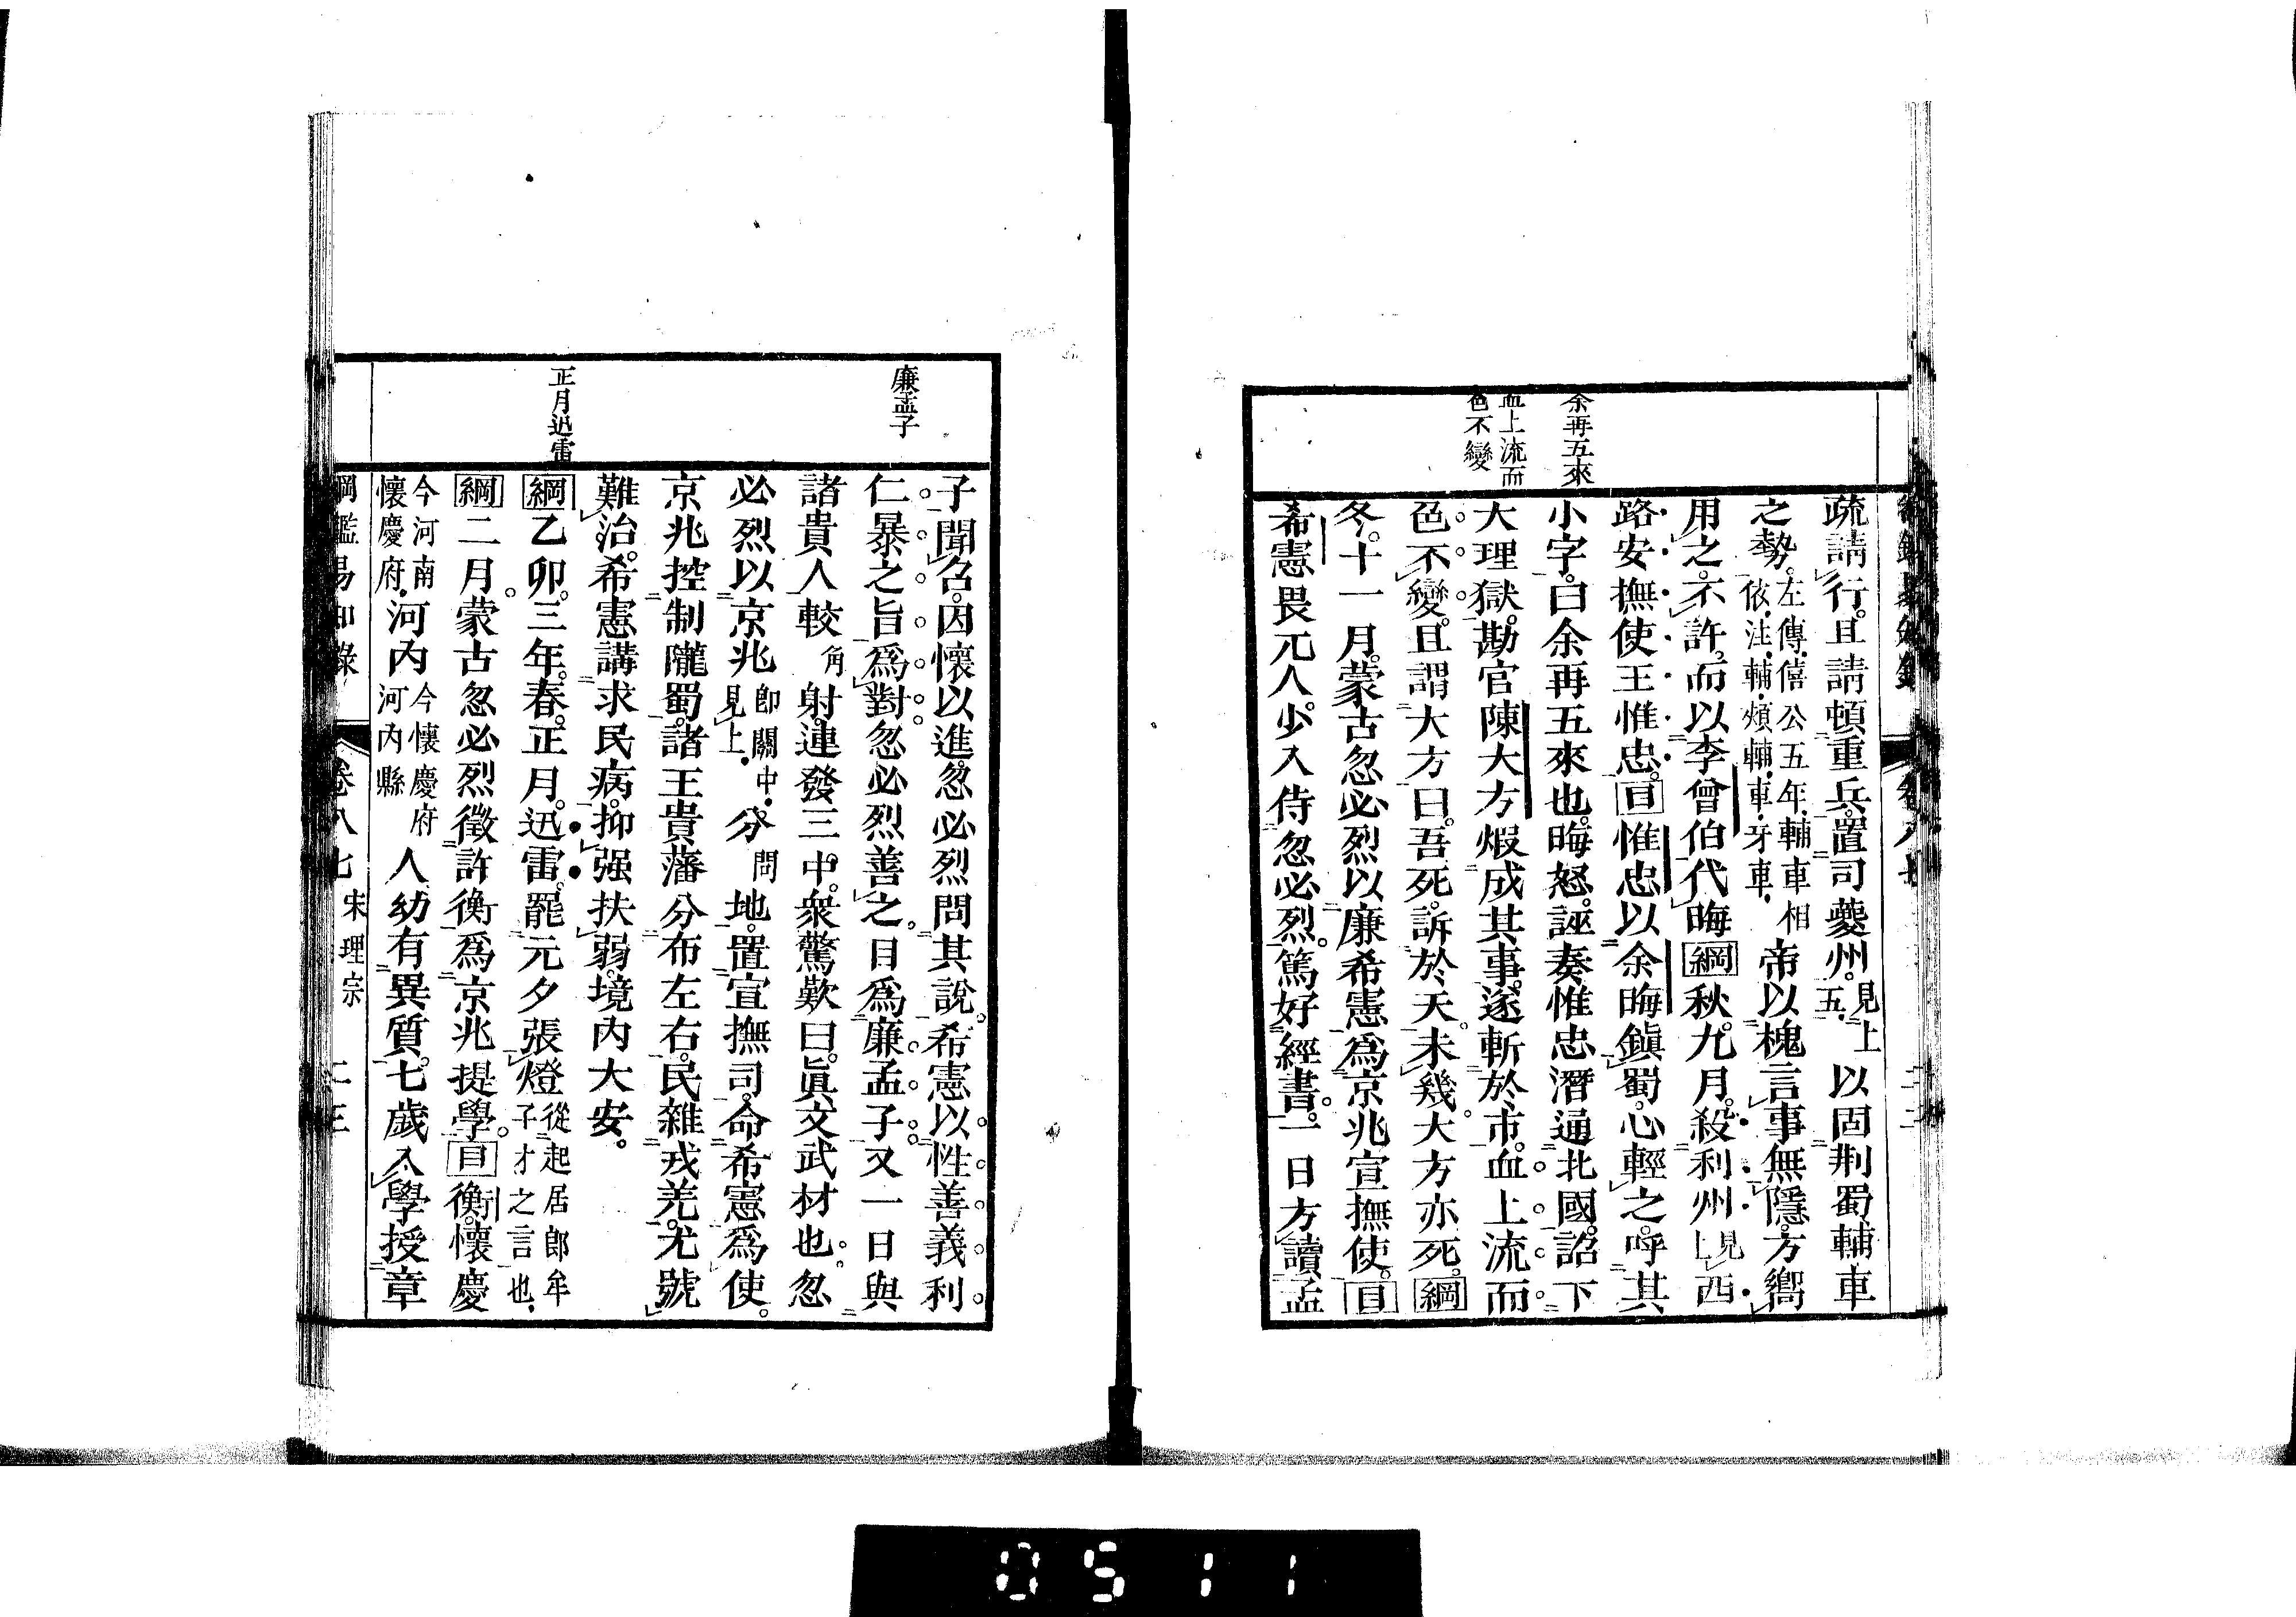 余再五來
血上流而
色不變
疏請行。且請頓重兵。置司夔州。見上五。以固荆蜀輔車
之勢。左傳僖公五年、輔車相依、注、輔、頰輔、車、牙車、帝以槐言事無隱。方嚮
用之。不許。而以李曾伯代晦綱秋。九月。殺利州見上西
路安撫使王惟忠。目惟忠以余晦鎮蜀。心輕之。呼其
小字。曰余再五來也。晦怒。誣奏惟忠潛通北國。詔下
大理獄。勘官陳大方煆成其事。遂斬於市。血上流而
色不變。且謂大方曰。吾死。訴於天。未幾。大方亦死。綱
冬。十一月。蒙古忽必烈以廉希憲爲京兆宣撫使。目
希憲畏兀人。少入侍忽必烈。篤好經書。一日方讀孟
廉孟子
正月迅雷
子聞召。因懷以進。忽必烈問其說。希憲以性善義利
仁暴之旨爲對。忽必烈善之。目爲廉孟子。又一日與
諸貴人較角射。連發三中。衆驚歎曰。眞文武材也。忽
必烈以京兆卽關中、見上、分問地。置宣撫司。命希憲爲使。
京兆控制隴蜀。諸王貴藩分布左右。民雜戎羌。尤號
難治。希憲講求民病。抑强扶弱。境內大安。
綱乙卯。三年。春。正月。迅雷。罷元夕張燈從起居郎牟子才之言也、
綱二月。蒙古忽必烈徵許衡爲京兆提學。目衡。懷慶
今河南懷慶府、河內今懷慶府河內縣人幼有異質。七歲入學授章
綱鑑易知錄 卷八七 宋理宗 二三